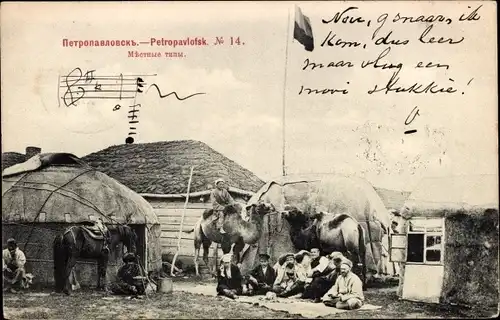 Петропавловскъ.—Petropavlofsk. № 14.
Мѣстные типы.
Nou, snaar, ik
Kom, dus leer
maar vlug een
mooi stukkie!